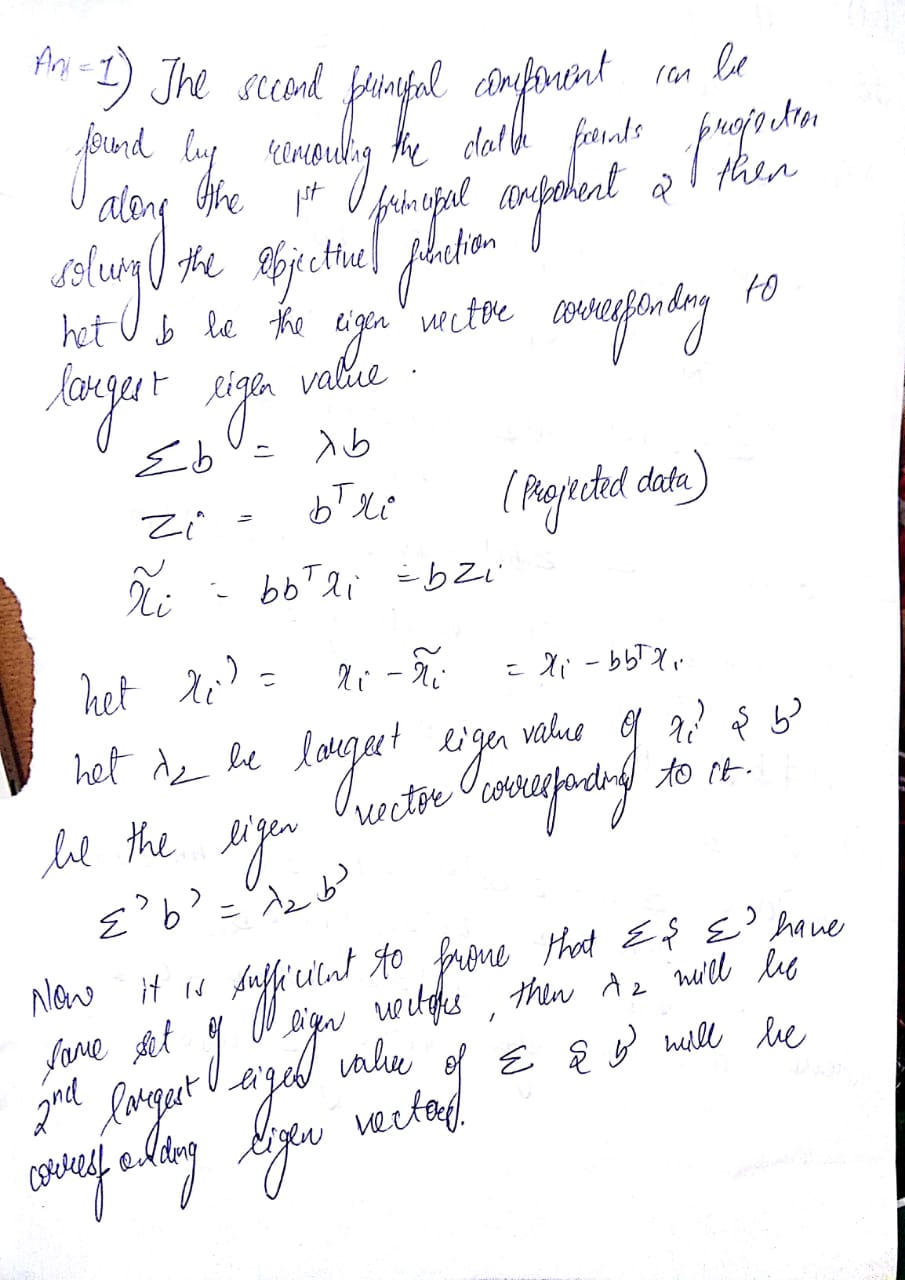 Ans = 1) The second principal component can be
found by removing the data points projection
along the 1st principal component & then
solving the objective function
Let b be the eigen vector corresponding to
largest eigen value.
Σb = λb
Zi = bᵀxi (Projected data)
x̃i = bbᵀxi = bZi
Let xi' = xi - x̃i = xi - bbᵀxi
Let λ2 be largest eigen value of xi' & b'
be the eigen vector corresponding to it.
Σ'b' = λ2b'
Now it is sufficient to prove that Σ & Σ' have
same set of eigen vectors, then λ2 will be
2nd largest eigen value of Σ & b' will be
corresponding eigen vector.